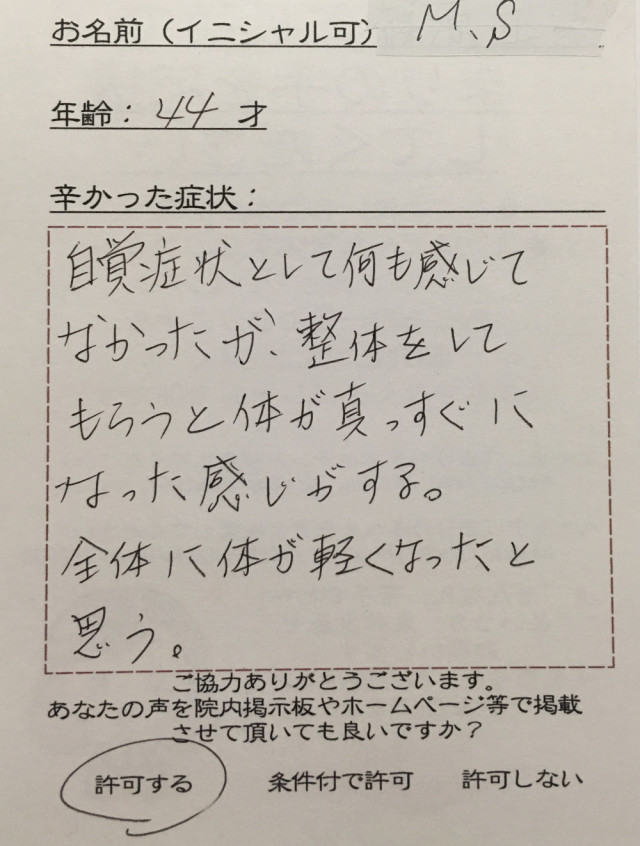 お名前（イニシャル可） M、S
年齢： 44 才
辛かった症状：
自覚症状として何も感じて
なかったが、整体をして
もらうと体が真っすぐに
なった感じがする。
全体に体が軽くなったと
思う。
ご協力ありがとうございます。
あなたの声を院内掲示板やホームページ等で掲載
させて頂いても良いですか？
許可する 条件付で許可 許可しない